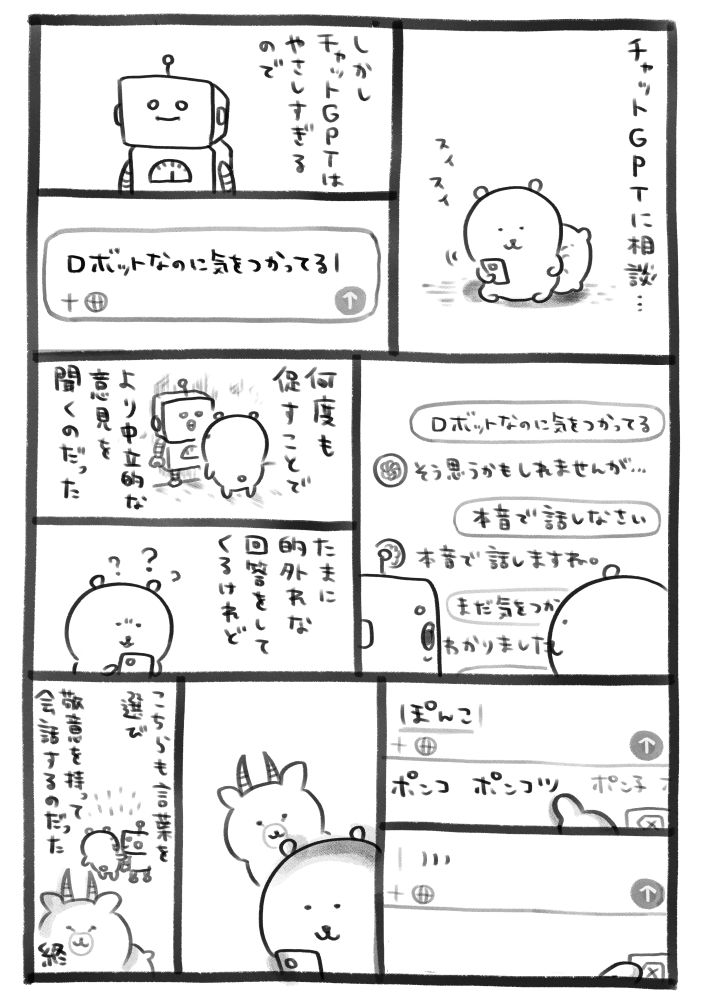 チャットGPTに相談…
スィ
スィ
しかし
チャットGPTは
やさしすぎる
ので
ロボットなのに気をつかってる
ロボットなのに気をつかってる
そう思うかもしれませんが…
本音で話しなさい
本音で話しますね。
まだ気をつか
わかりました
何度も
促すことで
より中立的な
意見を
聞くのだった
たまに
的外れな
回答をして
くるけれど
ぽんこ
ポンコ ポンコツ ポン子
こちらも言葉を
選び
敬意を持って
会話するのだった
終